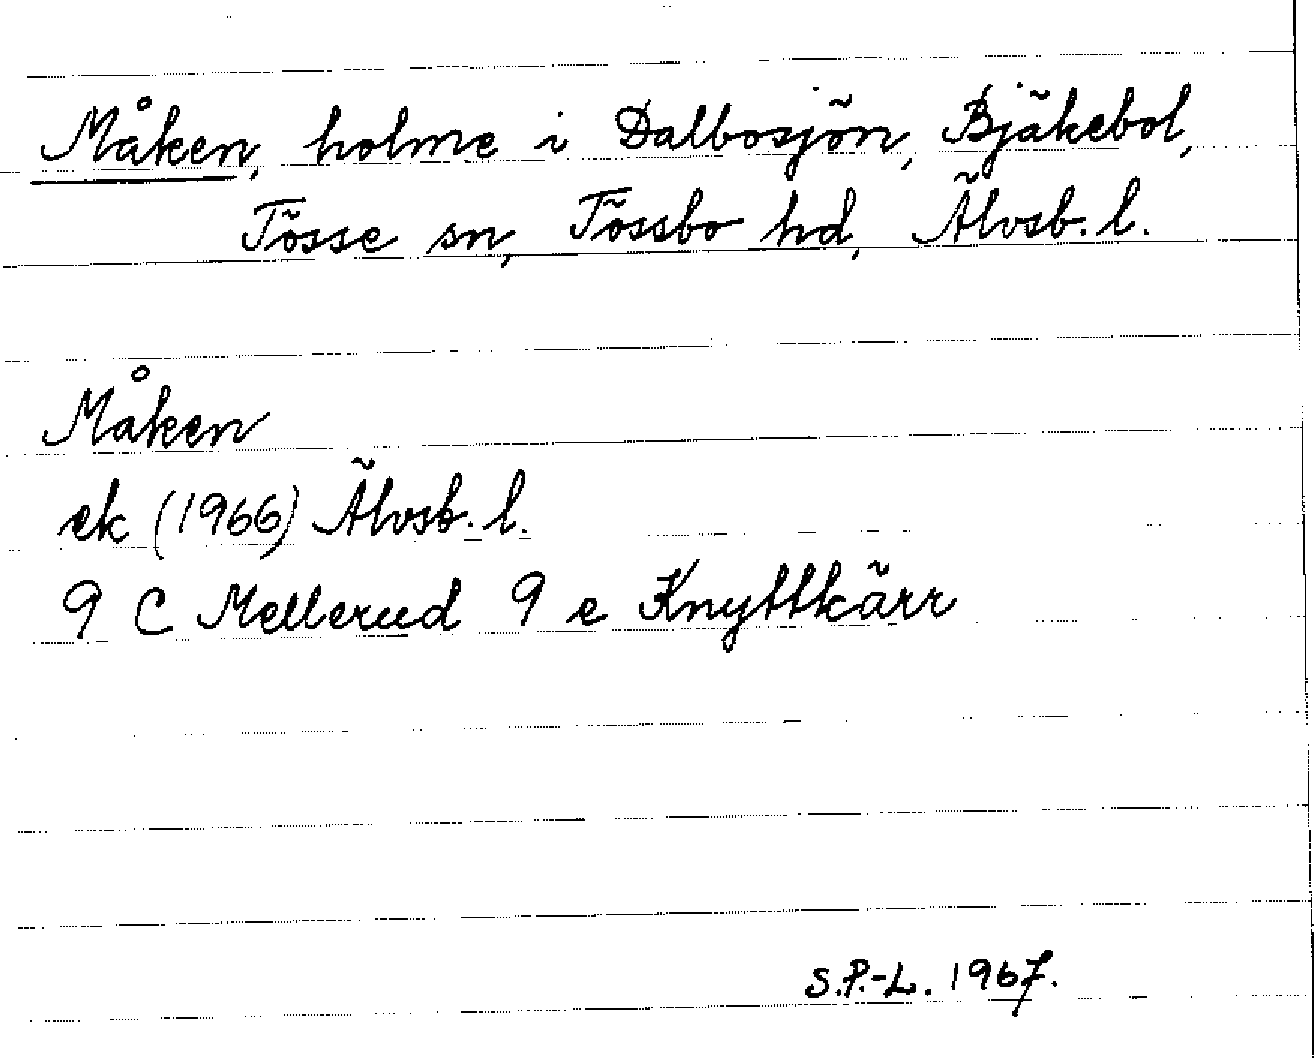 Måken, holme i Dalbosjön, Bjäkebol,
Tösse sn, Tössbo hd, Älvsb. l.
Måken
ek (1966) Älvsb. l.
9 C Mellerud 9 e Knyttkärr
S.P.-L. 1967.